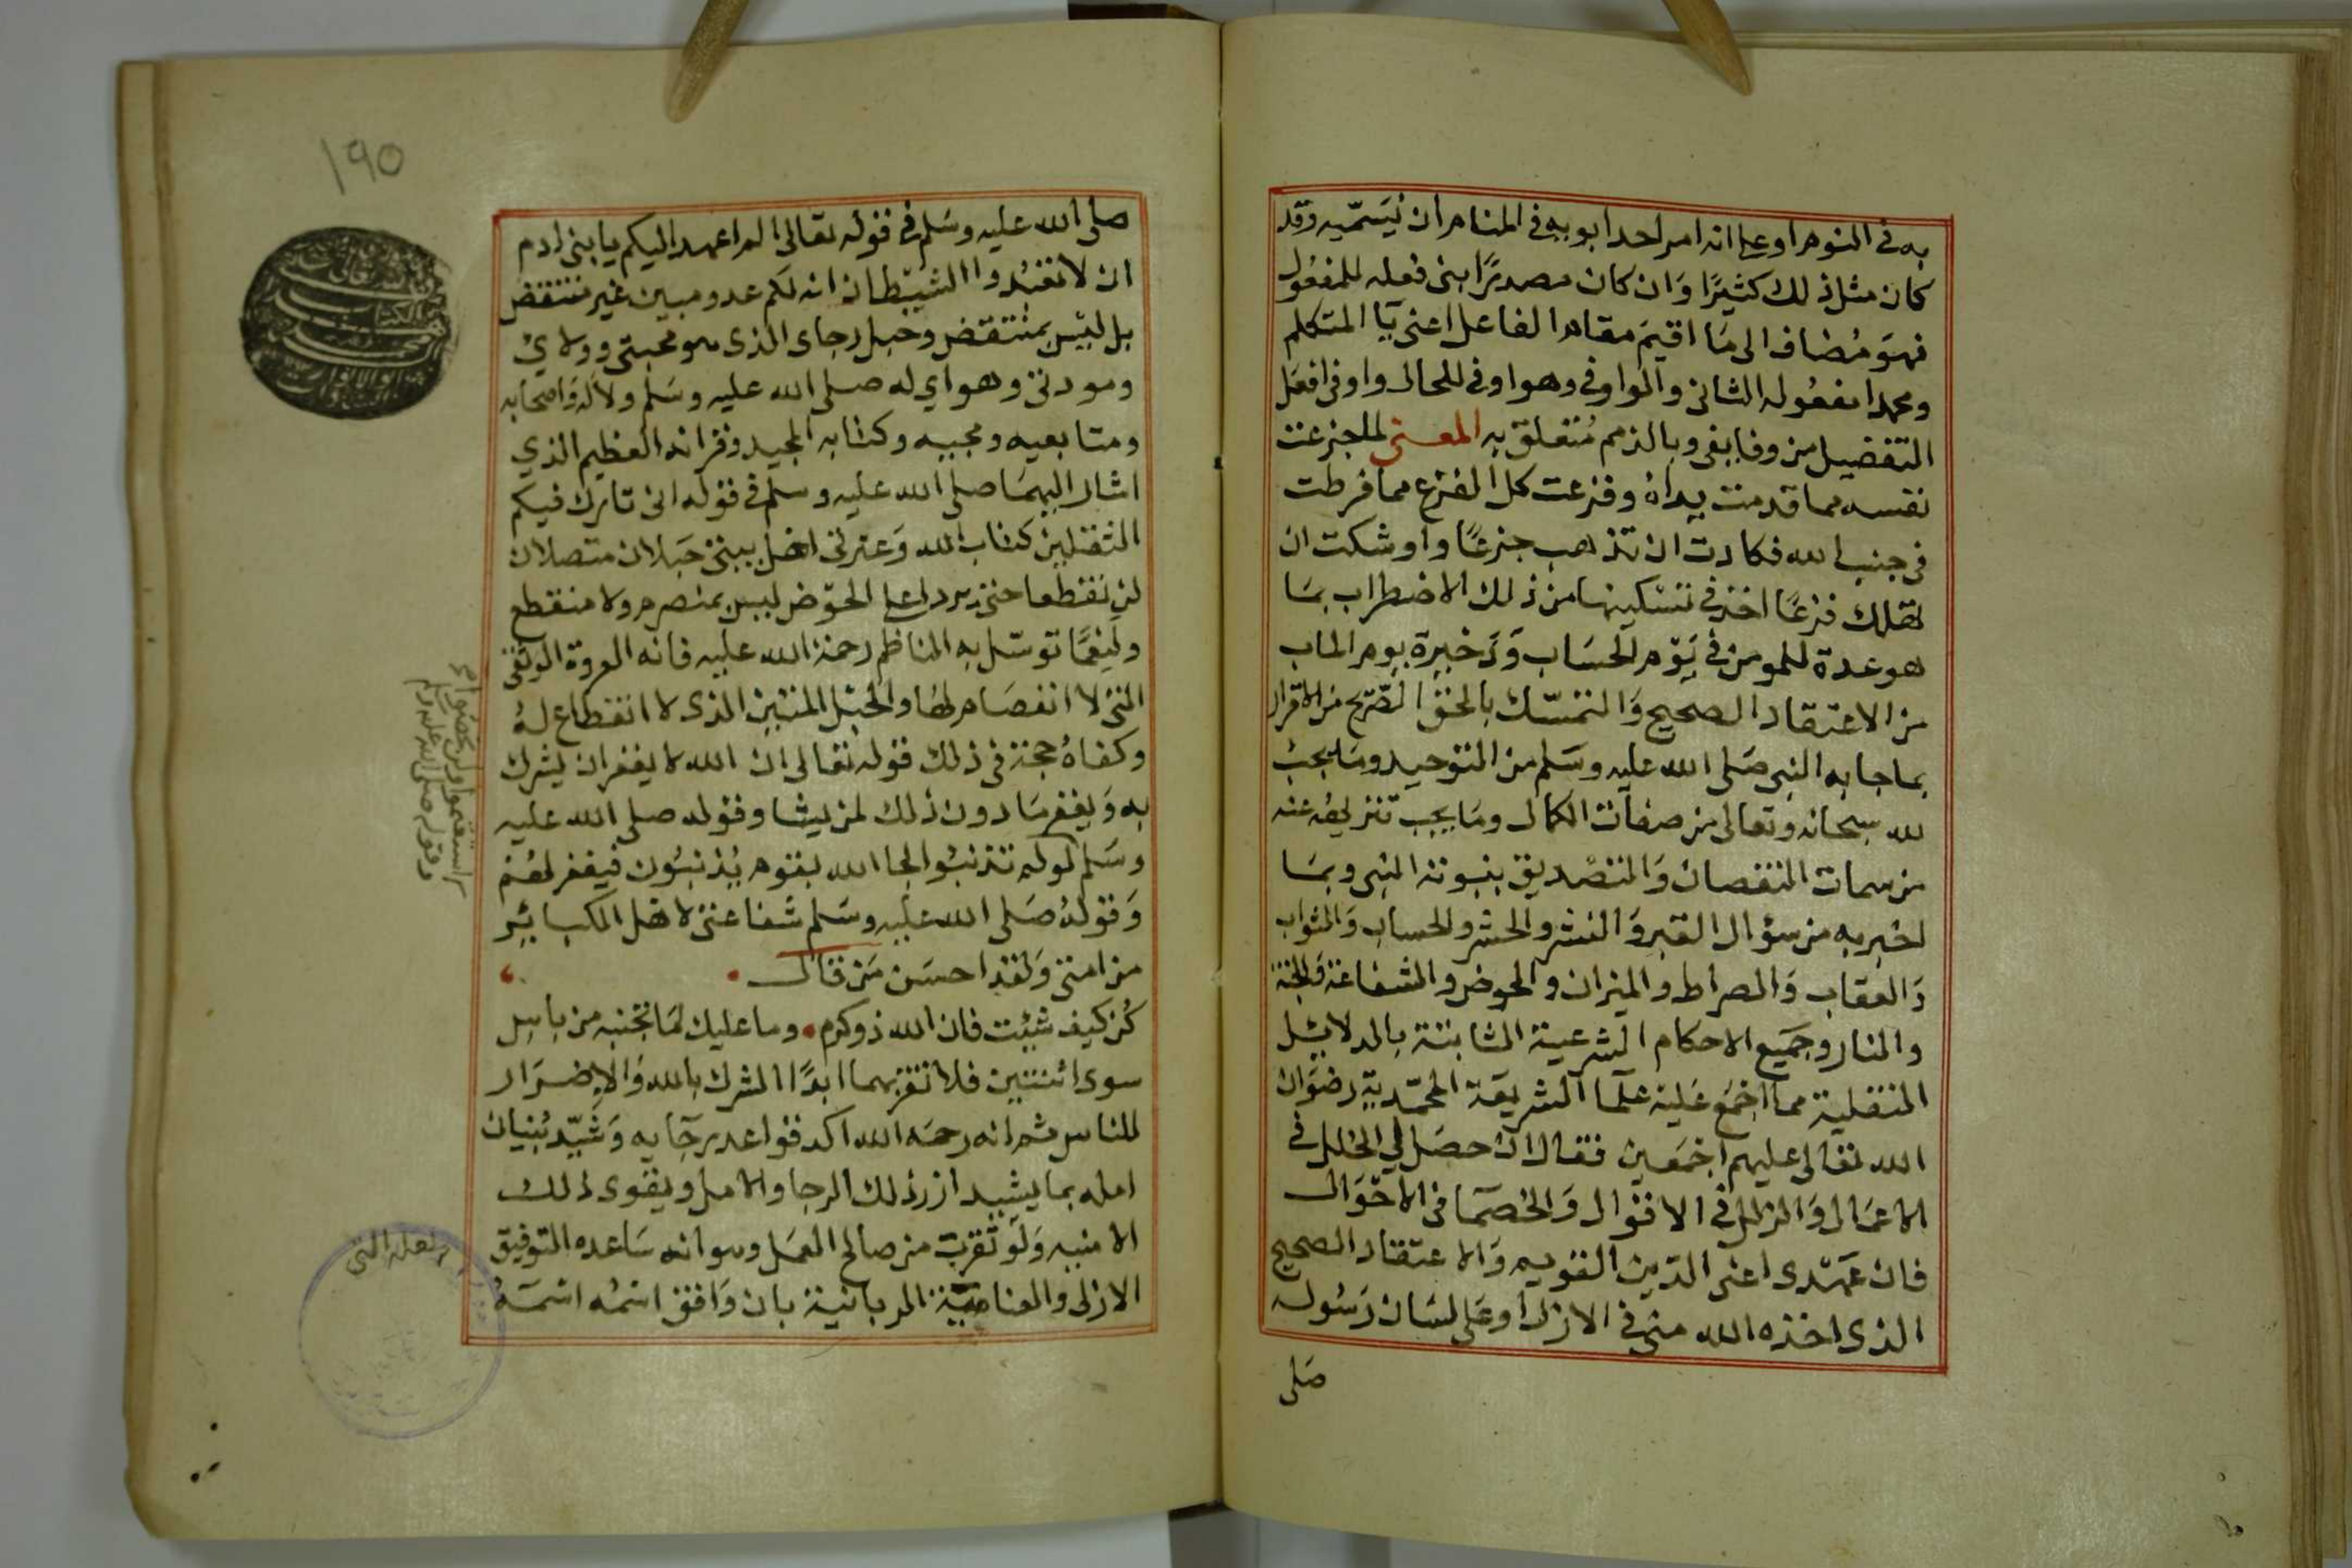 به فى النوم او على انه امر احد ابويه فى المنام ان يُسَمّيه وقد
كان مثل ذلك كثيرًا وَان كان مصدرًا بنى فعله للمفعول
فهوَ مُضاف الى مَا اقيمَ مقام الفاعل اعنى يَآ المتكلم
ومحمدا مفعُوله الثانى والواو فى وهو اوفى للحال واوفى افعل
التفضيل من وفا يفى وبالذمم مُتعلق به المعنى لما جزعت
نفسه مما قدمت يداهُ وفزعت كل الفزع مما فرطت
فى جنب الله فكادت ان تذهب جزعًا واوشكت ان
تهلك فزعًا اخذ فى تسكينها من ذلك الاضطراب بمَا
هو عدة للمومن فى يَوْم الحسَاب وَذخيرة يوم الماب
من الاعتقاد الصحيح وَالتمسّك بالحق الصّريح من الاقرار
بما جا به النبى صَلى الله عليه وسَلم من التوحيد ومَا يجب
لله سبحانه وتعالى من صفات الكمال ومَا يجب تنزيهُه عنه
من سمات النقصان وَالتصْديق بنبوته النبى وبمَا
اخبر به من سؤال القبر وَالنشر والحشر والحساب وَالثواب
وَالعقاب وَالصراط والميزان والحوض والشفاعة وَالجنة
والنار وجَميع الاحكام الشرعية الثابتة بالدلايئل
النقلية مما اجْمَع عَليه علمآ الشريعَة المحمّديّة رضوَان
الله تعَالى عليهم اجْمَعين فقال ان حصَل لي الخلل فى
الاعمَال وَالزلل فى الاقوَال وَالخصمَا فى الاحْوَال
فان عَهْدى اعنى الدّين القويم وَالاعتقاد الصحيح
الذى اخذه الله منى فى الازل او عَلى لسَان رَسُوله
صَلى
١٩٥
صلى الله عليه وسَلم فى قوله تعالى الم اعهد اليكم يا بنى ادم
ان لا تعبُدوا الشيْطان انه لكم عدو مبين غير منتقض
بل ليْسَ بمُنتقض وحبل رجاى الذى هو محبتى وولاىْ
ومودتى وهواي له صلى الله عليه وسَلم ولاله وَاصحابه
ومتابعيه ومحبيه وكتابه المجيد وقرانه العظيم الذي
اشار اليهمَا صلى الله عليه وسلم فى قوله انى تارك فيكم
الثقلين كتاب الله وَعترتى اهل بيتى حَبلان متصلان
لن يَنقطعا حتى يردا على الحوْض ليس بمنصرم ولا منقطع
ولَنِعمَّا توسّل به الناظم رحمة الله عليه فانه العروة الوثقى
التى لا انفصَام لهَا والحبْل المتين الذى لا انقطاع لهُ
وكفاهُ حجة فى ذلك قوله تعالى ان الله لا يغفر ان يشرك
به وَيغفر مَا دون ذلك لمن يشا وقوله صلى الله عليه
وسَلم لو لم تذنبُوا لجا الله بقوم يُذنبُون فيغفر لهُم
وَقولهُ صَلى الله عليه وسَلم شفاعتى لاهْل الكبائر
من امتى وَلقد احسَن مَن قال
كُن كيف شيئت فان الله ذو كرم وما عليك لمَا تجنبه من باس
سوى اثنتين فلا تقربهما ابدًا الشرك بالله وَالاضرَار
للناس ثم انه رحمَه الله اكد قواعد رجآيه وَشيّد بُنيان
امله بما يشيد ازر ذلك الرجا والامل ويقوى ذلك
الامنيه وَلو تقربت من صالح العمَل وهو انه سَاعده التوفيق
الازلى والعناية الربانية بان وَافق اسمُه اسْمَهُ
استقيموا ولن تحصوا
وقوله صلى الله عليه وسلم